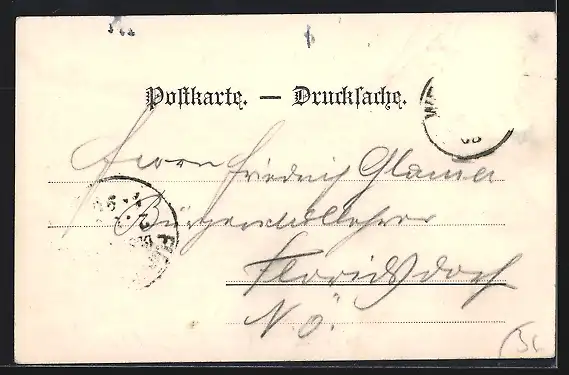 Postkarte. — Drucksache.
Herrn Friedrich Glauer
Bürgerschullehrer
Floridsdorf
N. Ö.